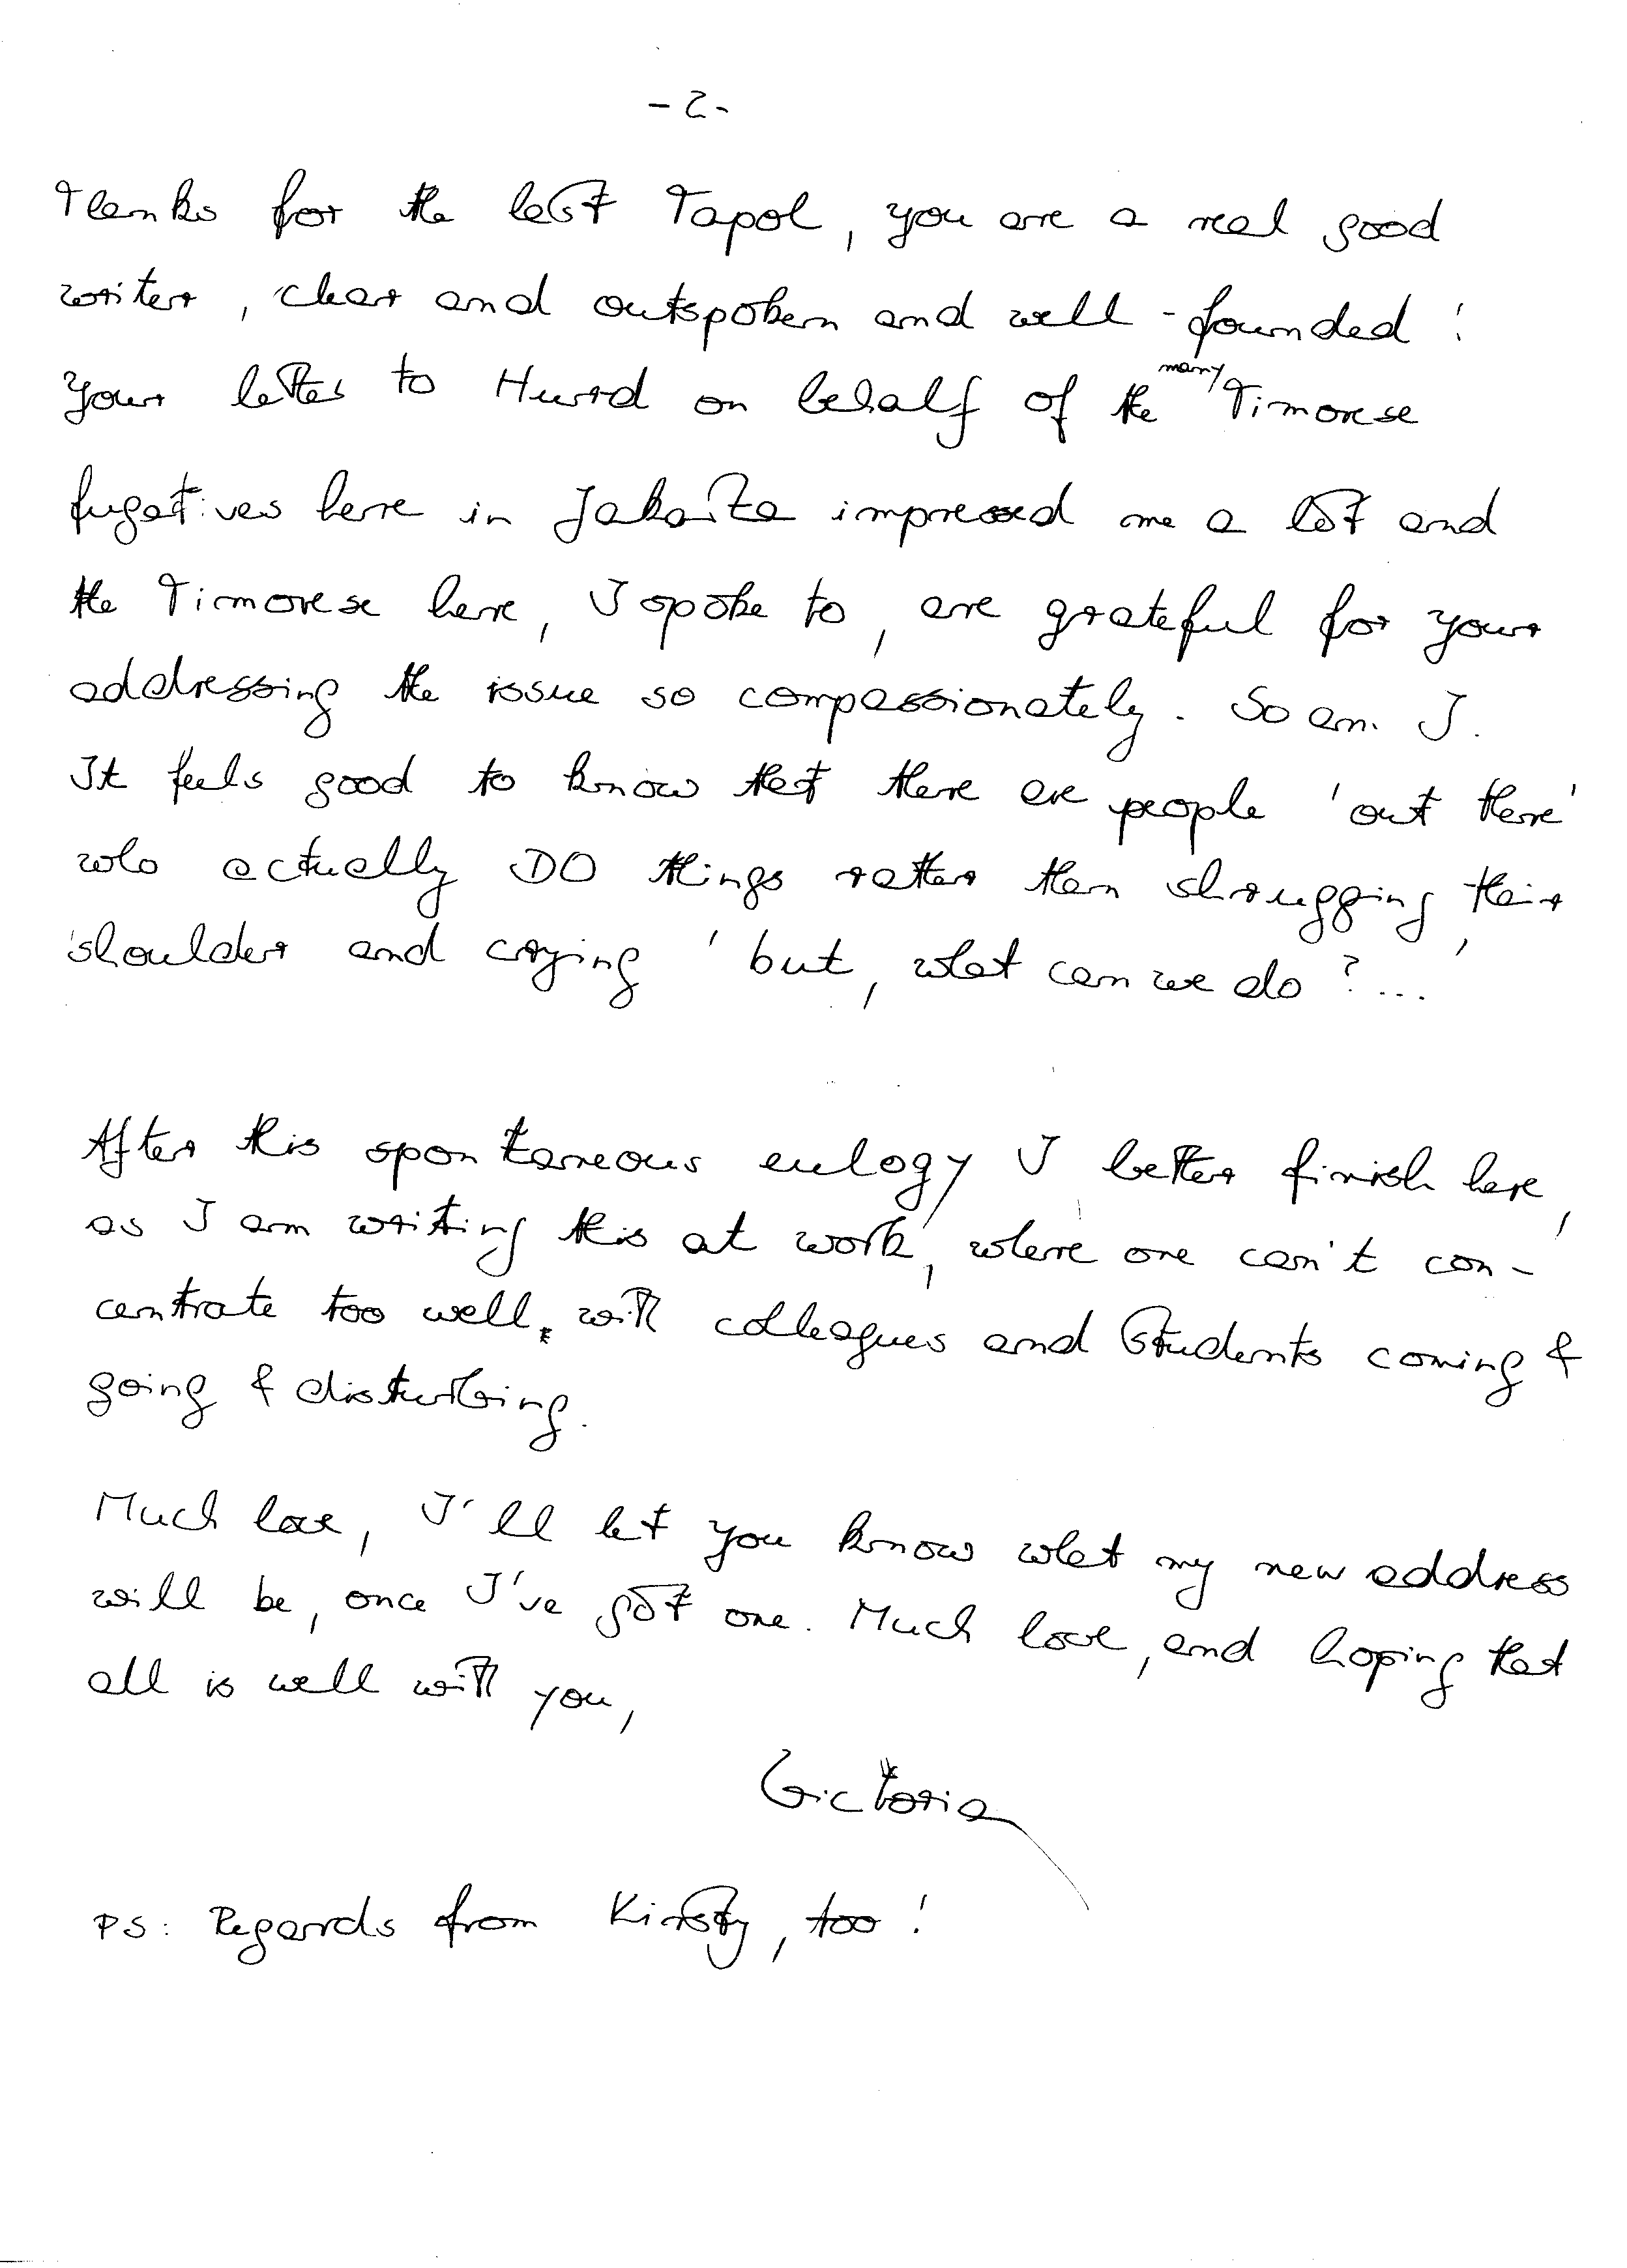 - 2 -
Thanks for the last Tapol, you are a real good
writer, clear and outspoken and well-founded!
Your letter to Hurd on behalf of the many Timorese
fugatives here in Jakarta impressed me a lot and
the Timorese here, I spoke to, are grateful for your
addressing the issue so compassionately. So am I.
It feels good to know that there are people 'out there'
who actually DO things rather than shrugging their
shoulder and crying 'but, what can we do?...'
After this spontaneous eulogy I better finish here,
as I am writing this at work, where one can't con-
centrate too well, with colleagues and students coming &
going & disturbing.
Much love, I'll let you know what my new address
will be, once I've got one. Much love, and hoping that
all is well with you,
Victoria
PS: Regards from Kirsty, too!